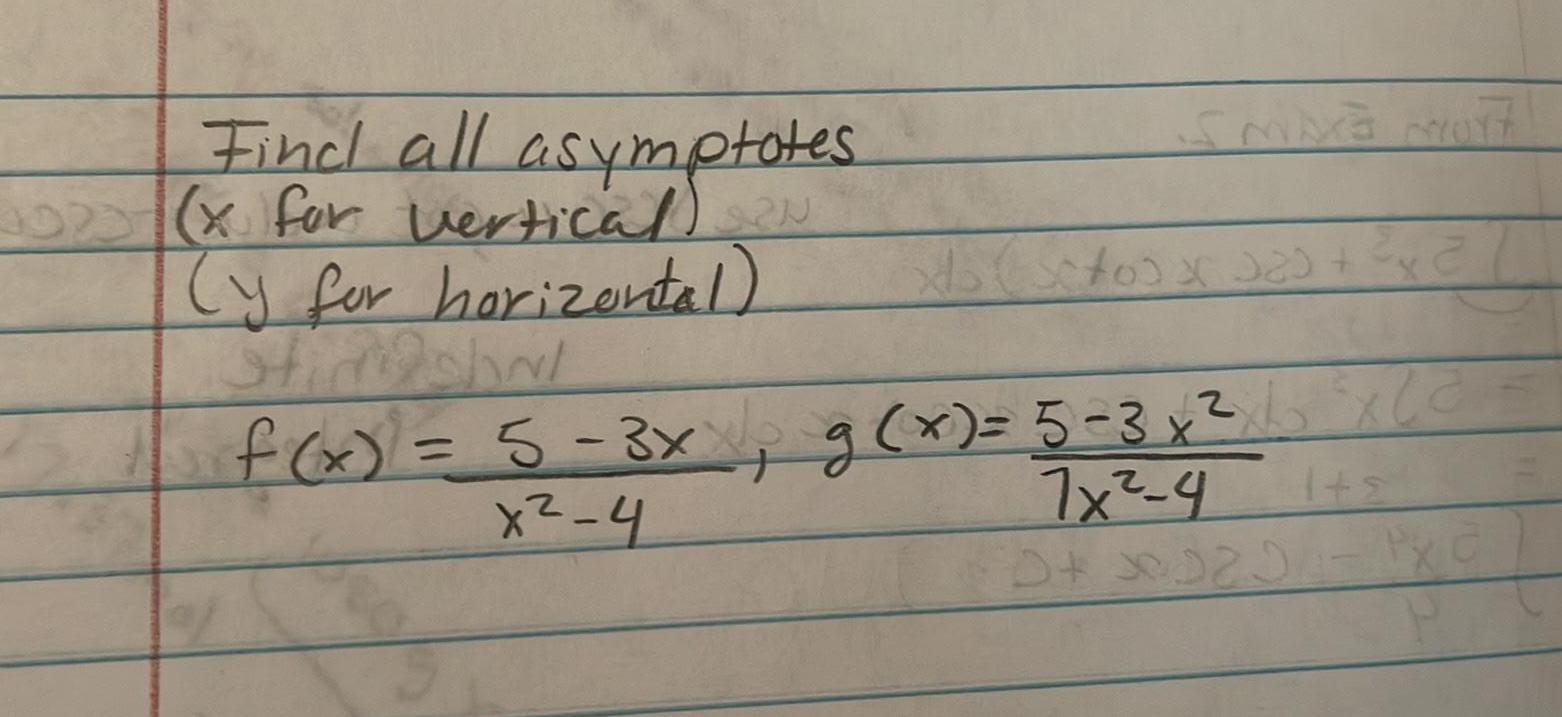 Find all asymptotes
(x for vertical)
(y for horizontal)
f(x) = 5 - 3x / x² - 4, g(x) = 5 - 3x² / 7x² - 4